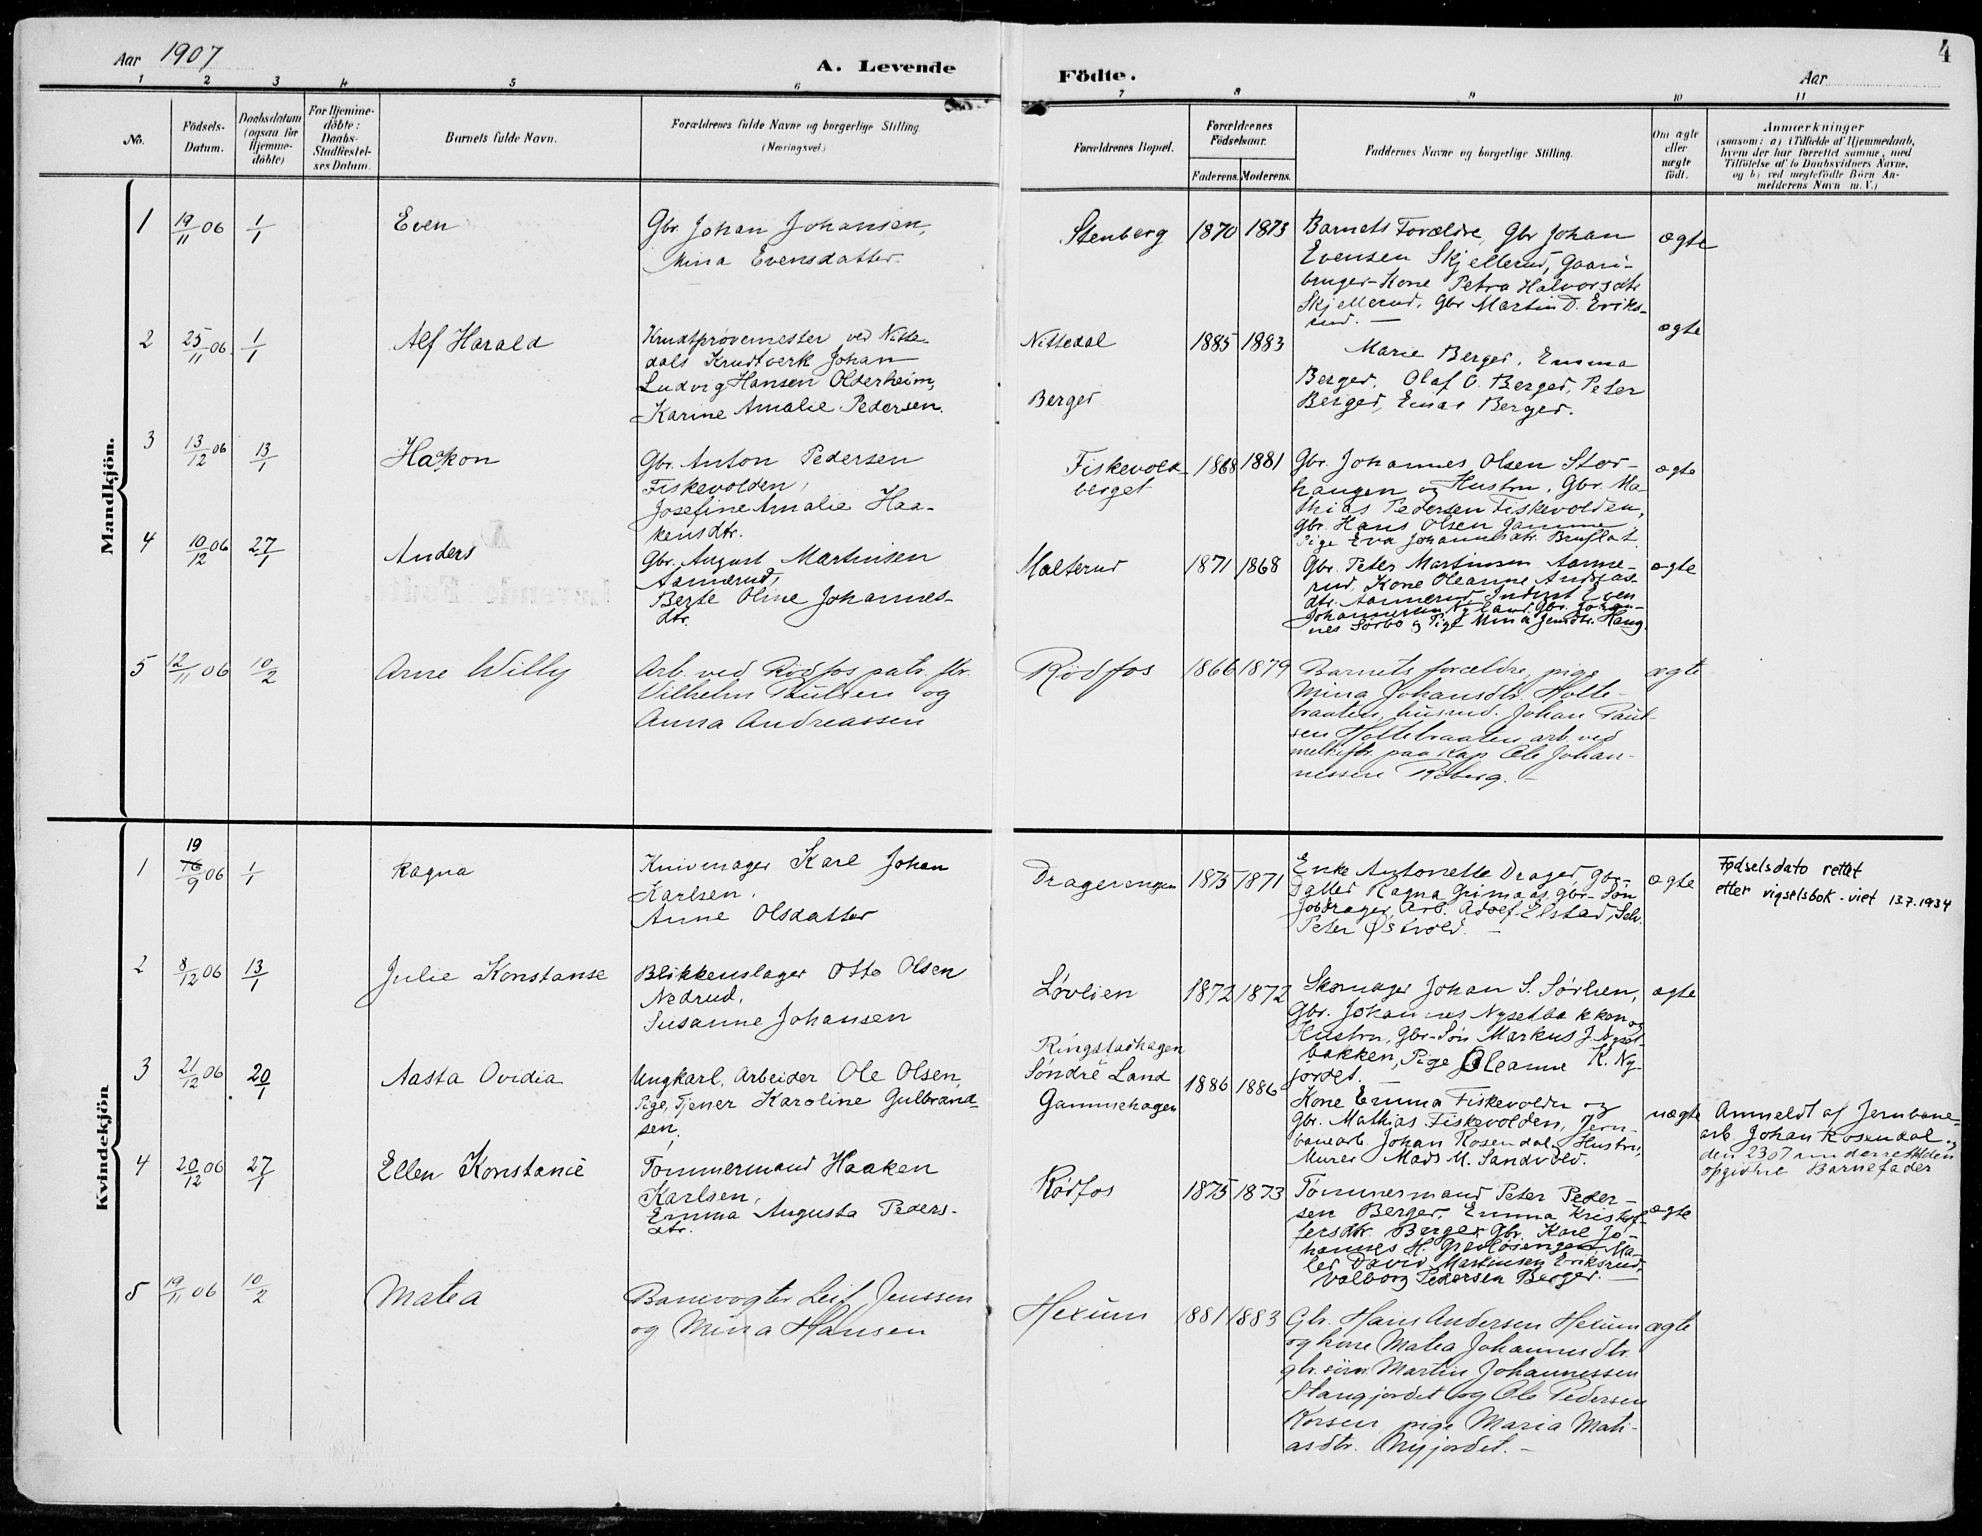 4
Aar 1907
A. Levende Födte.
Aar
1 2 3 4 5 6 7 8 9 10 11
No.
Födsels-
Datum.
Daabsdatum
(ogsaa for
Hjemme-
döbte)
For Hjemme-
döbte:
Daabs-
Stadfæstel-
ses Datum.
Barnets fulde Navn.
Forældrenes fulde Navne og borgerlige Stilling.
(Næringsvei)
Forældrenes Bopæl.
Forældrenes
Födselsaar.
Faderens. Moderens.
Faddernes Navne og borgerlige Stilling.
Om ægte
eller
uægte
födt.
Anmærkninger
(saasom: a) i Tilfælde af Hjemmedaab,
hvem der har forrettet samme, med
Tilföielse af to Daabsvidners Navne,
og b) ved uægtefödte Börn An-
melderens Navn m. V.)
Mandkjön.
1 19/11 06 1/1 Even
Gbr. Johan Johansen,
Mina Evensdatter.
Stenberg 1870 1873
Barnets Forældre, Gbr Johan
Evensen Skjellerud, Gaard-
bruger-Kone Petra Halvorsdtr
Skjellerud, Gbr Martin D. Eriks-
rud. —
ægte
2 25/11 06. 1/1 Alf Harald
Krudtprøvemester ved Nitte-
dals Krudtverk Johan
Ludvig Hansen Olderheim,
Karine Amalie Pedersen.
Nittedal
Berger
1885 1883
Marie Berger, Emma
Berger, Olaf O. Berger, Peter
Berger, Einar Berger.
ægte
3 13/12 06 13/1 Haakon
Gbr. Anton Pedersen
Fiskevolden,
Josefine Amalie Haa-
kensdtr.
Fiskevold-
berget
1868 1881
Gbr. Johannes Olsen Stor-
haugen og Hustru, Gbr. Ma-
thias Pedersen Fiskevolden,
Gbr. Hans Olsen Gamme,
Pige Eva Johannesdtr. Bruflat.
ægte
4 10/12 06 27/1 Anders
Gbr. August Martinsen
Aannerud,
Berte Oline Johannes-
dtr.
Mælterud 1871 1868
Gbr. Peter Martinsen Aanne-
rud, Kone Oleanne Andreas-
dtr. Aannerud, Inderst Even
Johannesen Nyland, Gbr. Johan-
nes Sørbo og Pige Mina Jensdtr. Haug.
ægte
5 12/11 06 10/2 Arne Willy
Arb. ved Rødfos patr. fbr.
Vilhelm Paulsen og
Anna Andreassen
Rødfos 1866 1879
Barnets forældre, pige
Mina Johansdtr. Holte-
braaten, husmd. Johan Paul-
sen Holtebraaten arb. ved
melkefbr. paa Kap Ole Johan-
nessen Røberg. —
ægte
Kvindekjön
1 19 16/9 06 1/1 Ragna
Knivmager Karl Johan
Karlsen,
Anne Olsdatter
Dragerengen 1875 1871
Enke Antonette Drager, Gbr-
Datter Ragna Grimaas, Gbr-Søn
Job Drager, Arb. Adolf Elstad, Selv.
Peter Østvold. —
ægte
Fødselsdato rettet
etter vigselsbok - viet 13.7.1934
2 8/12 06 13/1 Julie Konstanse
Blikkenslager Otto Olsen
Nedrud,
Susanne Johansen
Løvlien 1872 1872
Skomager Johan S. Sørlien,
Gbr. Johannes Nysetbakken og
Hustru, Gbr-Søn Markus J. Nyset-
bakken, Pige Oleanne K. Ny-
jordet. —
ægte
3 21/12 06 20/1 Aasta Ovidia
Ungkarl, Arbeider Ole Olsen,
Pige, Tjener Karoline Gulbrand-
sen,
Ringstadhagen
Søndre Land
Gammehagen
1886 1886
Kone Emma Fiskevolden og
Gbr. Mathias Fiskevolden, Jern-
banearb. Johan Rosendal, Hustru,
Murer Mads M. Sandvold.
uægte
Anmeldt af Jernbane-
arb. Johan Rosendal og
den 23 07 underrettet den
opgivne Barnefader
4 20/12 06 27/1 Ellen Konstanse
Tømmermand Haaken
Karlsen,
Emma Augusta Peders-
dtr.
Rødfos 1875 1873
Tømmermand Peter Peder-
sen Berger, Emma Kristof-
fersdtr. Berger, Gbr. Karl Jo-
hannes H. Grevlosengen, Ma-
ler David Martinsen Eriksrud,
Valborg Pedersen Berger. —
ægte
5 19/11 06 10/2 Matea
Banevogter Leif Jenssen
og Mina Hansen
Hexum 1881 1883
Gbr. Hans Andersen Hexum
og kone Matea Johannesdtr.
gbr. sön Martin Johannessen
Haugjordet og Ole Pedersen
Korsen pige Maria Mati-
asdtr. Nyjordet. —
ægte